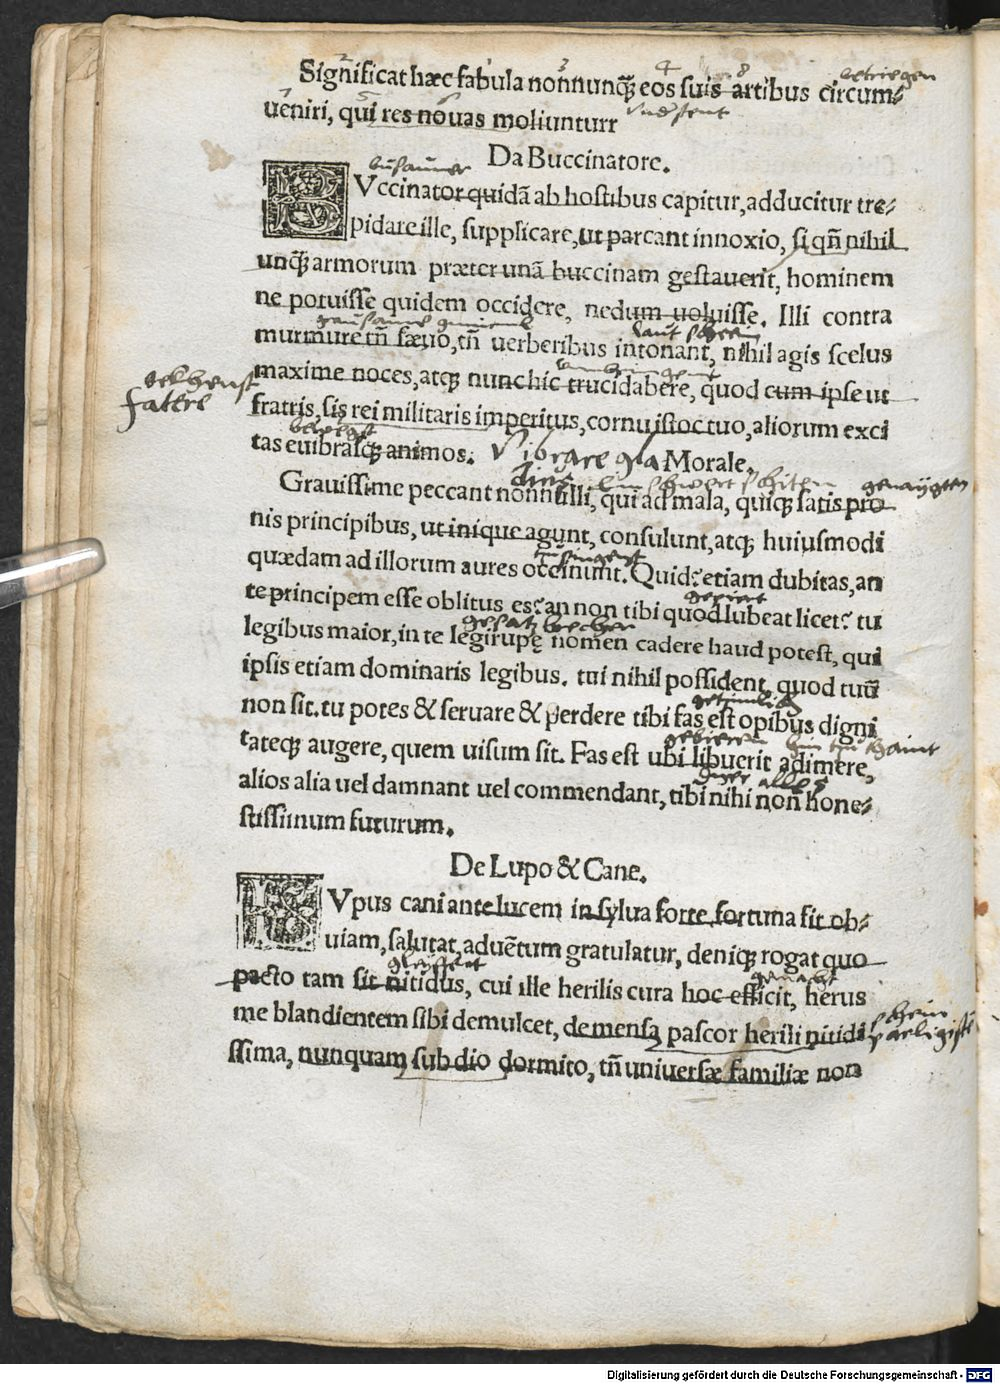 Significat hæc fabula nonnunq̃ eos suis artibus circum-
betriegen
ueniri, qui res nouas moliunturr
Da Buccinatore.
BVccinator quidã ab hostibus capitur, adducitur tre-
pidare ille, supplicare, ut parcant innoxio, si qñ nihil
unq̃ armorum præter unã buccinam gestauerit, hominem
ne potuisse quidem occidere, nedum uoluisse. Illi contra
murmure tñ sæuo, tñ uerberibus intonant, nihil agis scelus
maxime noces, atq; nunc hic trucidabere, quod cum ipse ut
fratris, sis rei militaris imperitus, cornu istoc tuo, aliorum exci
tas euibrasq; animos.
Vibrare gla
Morale.
Grauissime peccant nonnulli, qui ad mala, quiq; satis pro
nis principibus, ut inique agunt, consulunt, atq; huiusmodi
quædam ad illorum aures occinunt. Quid? etiam dubitas, an
te principem esse oblitus es? an non tibi quod lubeat licet? tu
legibus maior, in te legirupę nomen cadere haud potest, qui
ipsis etiam dominaris legibus. tui nihil possident, quod tuũ
non sit. tu potes & seruare & perdere tibi fas est opibus digni
tateq; augere, quem uisum sit. Fas est ubi libuerit adimere,
alios alia uel damnant uel commendant, tibi nihi non hone-
stissimum futurum.
De Lupo & Cane.
Vpus cani ante lucem in sylua forte fortuna fit ob-
uiam, salutat, aduẽtum gratulatur, deniq; rogat quo
pacto tam sit nitidus, cui ille herilis cura hoc efficit, herus
me blandientem sibi demulcet, de mensa pascor herili nitidi
ssima, nunquam sub dio dormito, tñ uniuersæ familiæ non
Digitalisierung gefördert durch die Deutsche Forschungsgemeinschaft - DFG